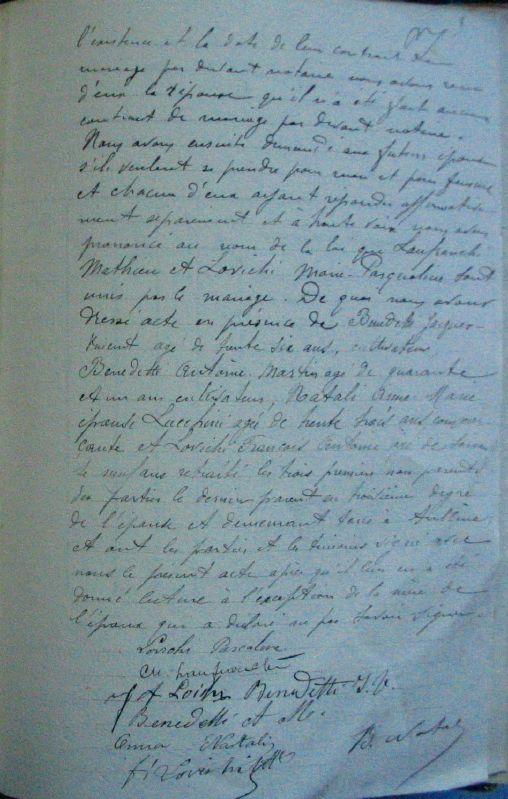 l'existence et la date de leur contrat de
mariage par devant notaire nous avons reçu
d'eux la réponse qu'il n'a été fait aucun
contrat de mariage par devant notaire.
Nous avons ensuite demandé aux futurs époux
s'ils veulent se prendre pour mari et pour femme
et chacun d'eux ayant répondu affirmative-
ment séparément et à haute voix nous avons
prononcé au nom de la loi que Lanfranchi
Mathieu et Lovichi Marie-Pasqualine sont
unis par le mariage. De quoi nous avons
dressé acte en présence de Benedetti Jacques-
Vincent agé de trente six ans, cultivateur
Benedetti Antoine Martin agé de quarante
et un ans cultivateur, Natali Anna Marie
épouse Luccioni agée de trente trois ans commer-
çante et Lovichi François Antoine agé de
neuf ans retraité les trois premiers non parents
des parties le dernier parent au troisième degré
de l'épouse et demeurant tous à
et ont les parties et les témoins signé avec
nous le présent acte après qu'il leur en a été
donné lecture à l'exception de la mère de
l'époux qui a déclaré ne pas savoir signer.
Lovichi Pascaline
Lovichi Benedetti J. V.
Benedetti A M.
Anna Natali